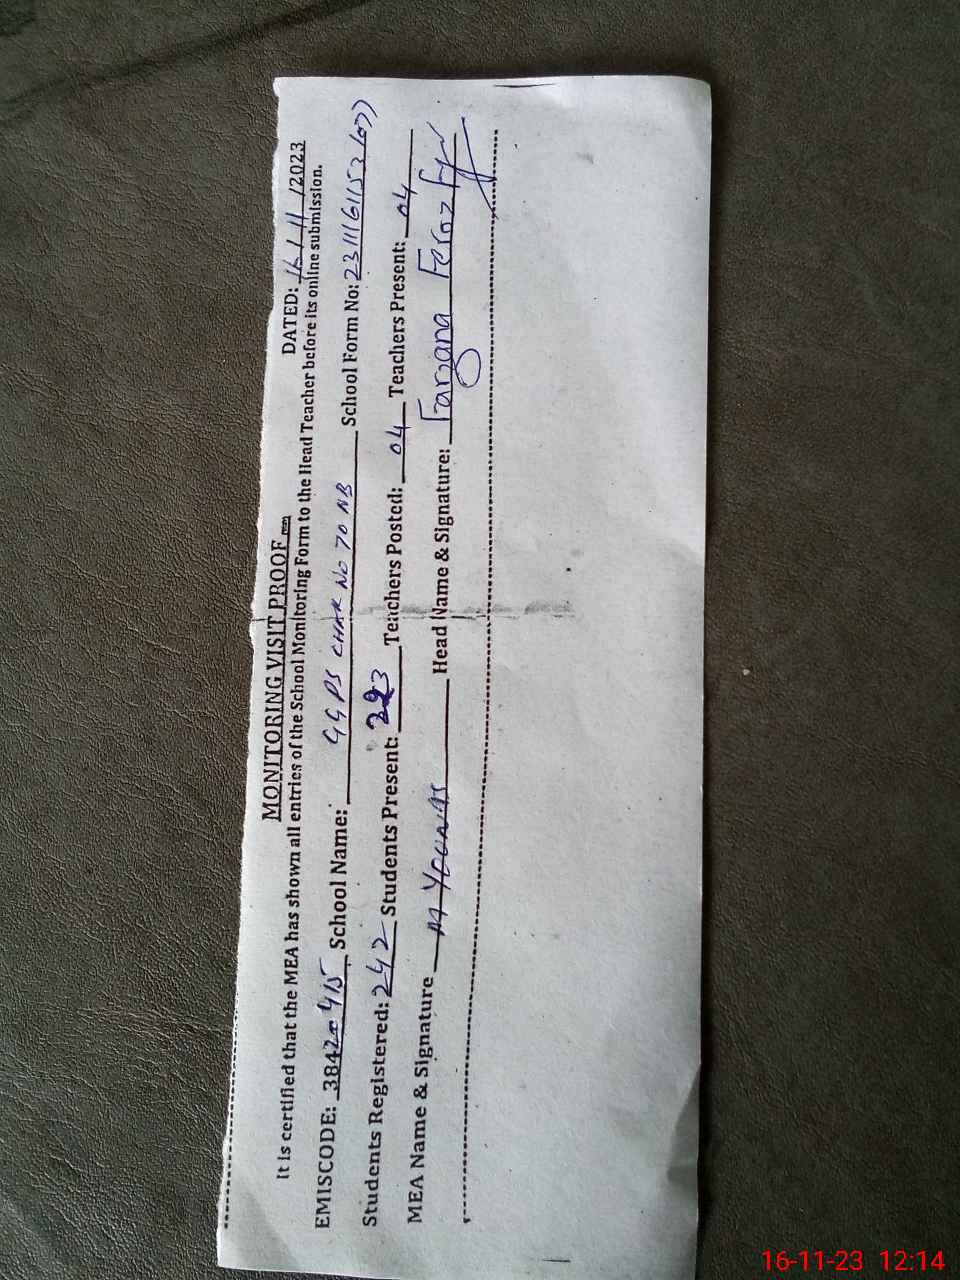 MONITORING VISIT PROOF
DATED: 16/11/2023
It is certified that the MEA has shown all entries of the School Monitoring Form to the Head Teacher before its online submission.
EMISCODE: 38420415 School Name: GGPS CHAK NO 70 NB School Form No: 2311161153 (07)
Students Registered: 242 Students Present: 223 Teachers Posted: 04 Teachers Present: 04
MEA Name & Signature M YOUNAS Head Name & Signature: Farzana Feroz
16-11-23 12:14